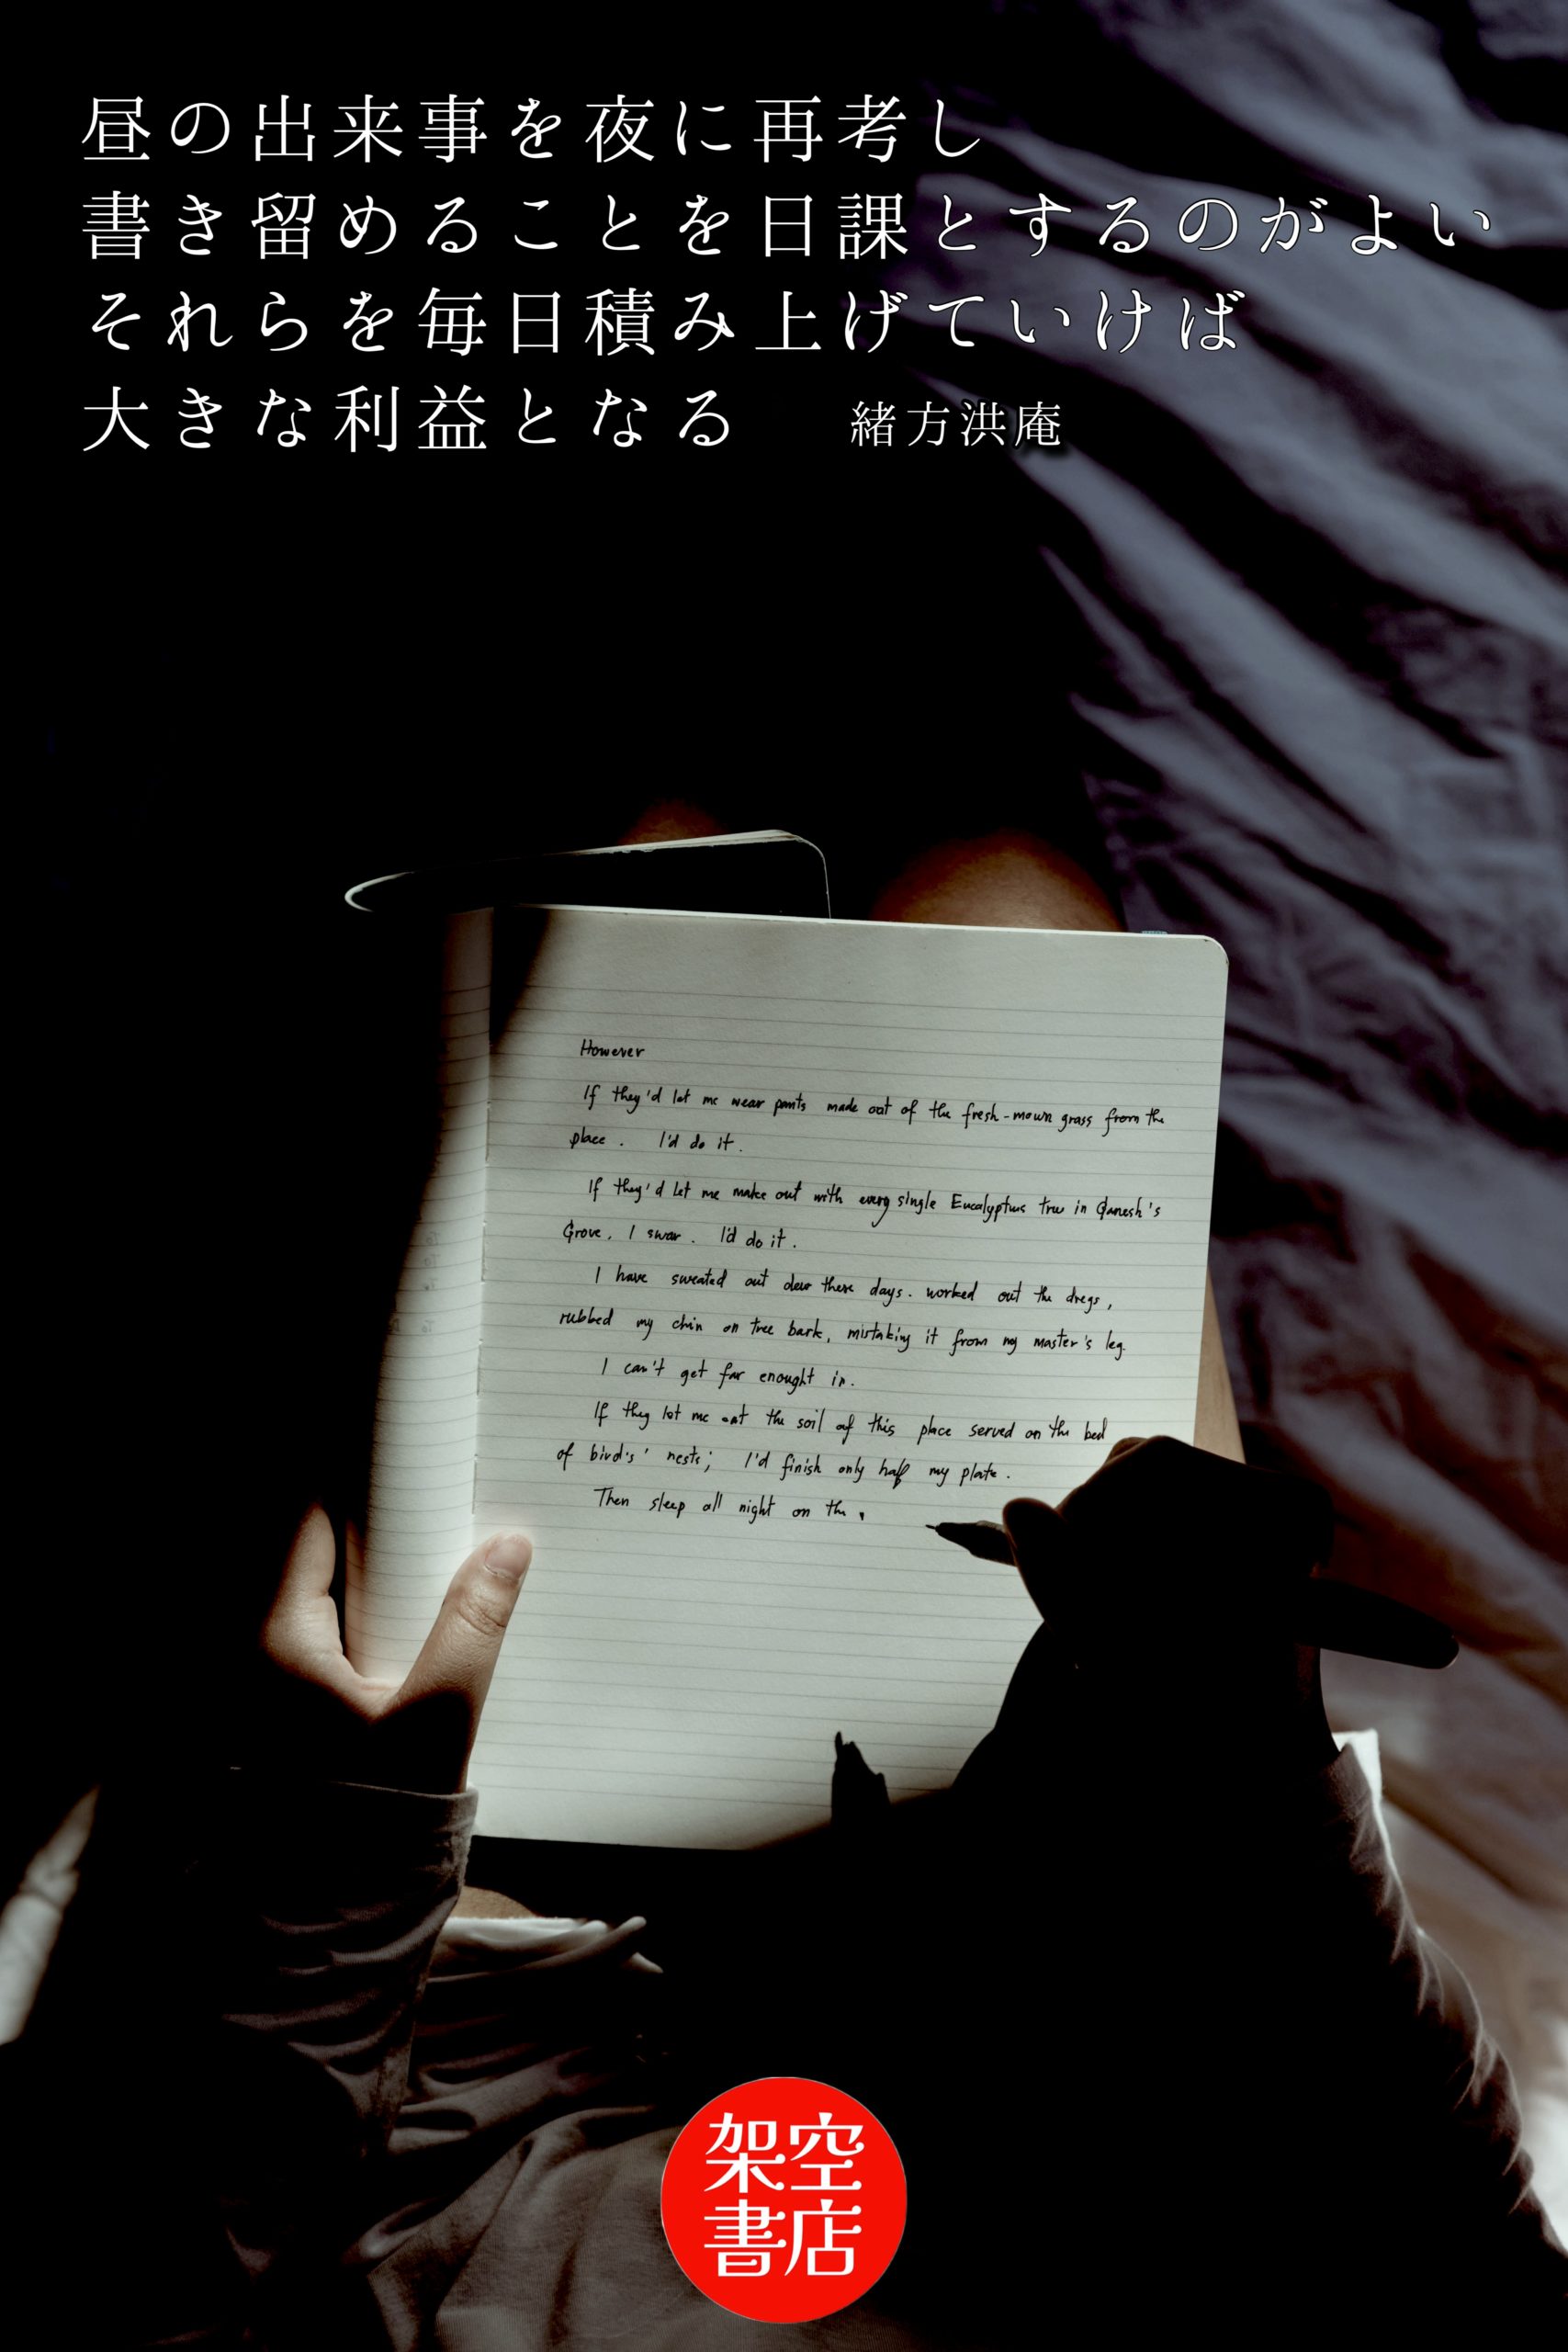 昼の出来事を夜に再考し
書き留めることを日課とするのがよい
それらを毎日積み上げていけば
大きな利益となる　緒方洪庵
However
If they'd let me wear pants made out of the fresh-mown grass from the
place. I'd do it.
If they'd let me make out with every single Eucalyptus tree in Ganesh's
Grove, I swar. I'd do it.
I have sweated out dew these days. worked out the dregs,
rubbed my chin on tree bark, mistaking it from my master's leg.
I can't get far enought in.
If they let me eat the soil of this place served on the bed
of bird's' nests; I'd finish only half my plate.
Then sleep all night on the
架空
書店